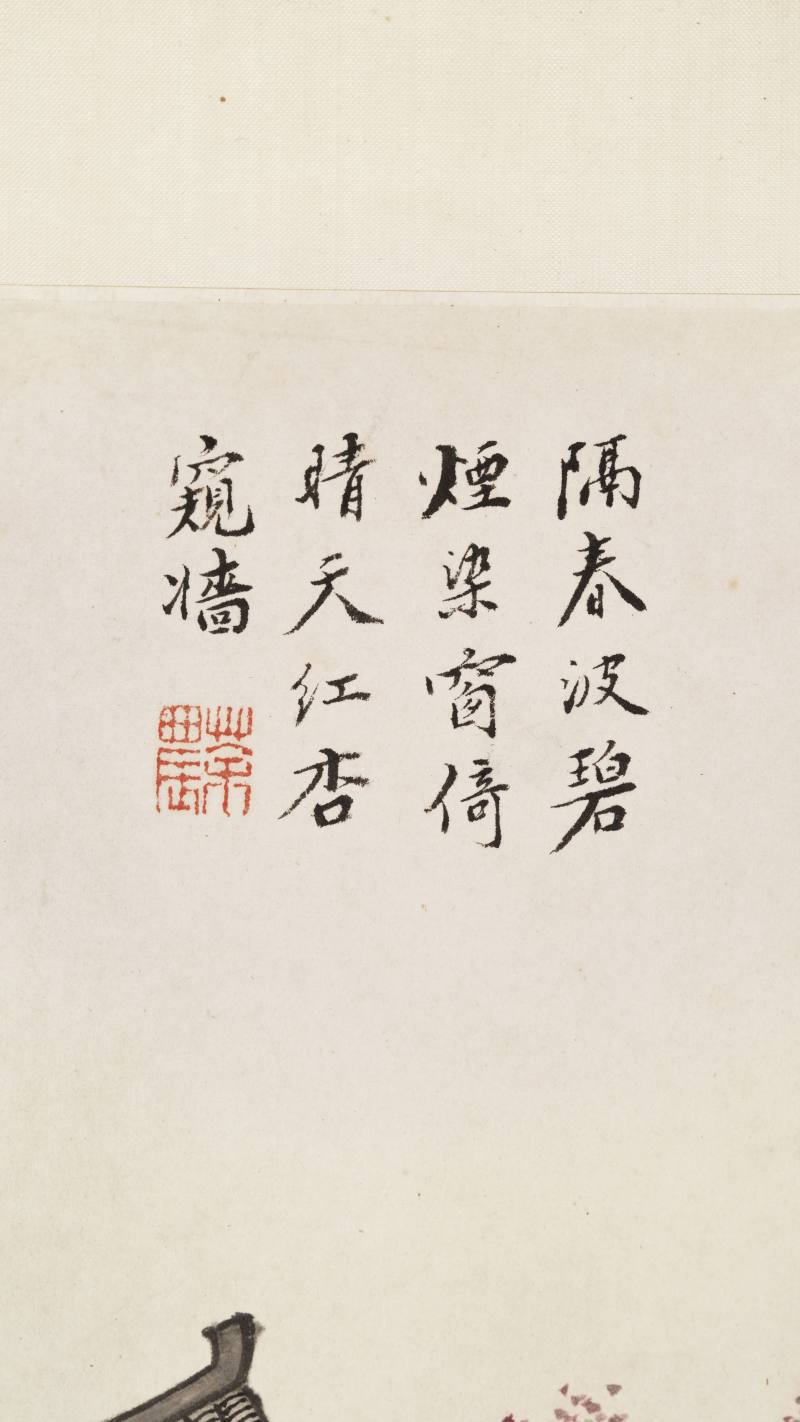 隔春波碧
煙染窗倚
晴天紅杏
窺墻